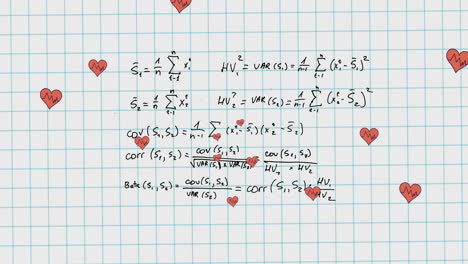 S̄₁ = 1/n Σ xᵢ   HV₁² = VAR(S₁) = 1/n-1 Σ (xᵢ - S̄₁)²
S̄₂ = 1/n Σ xᵢ   HV₂² = VAR(S₂) = 1/n-1 Σ (xᵢ - S̄₂)²
COV(S₁,S₂) = 1/n-1 Σ (xᵢ - S̄₁)(x₂ - S̄₂)
corr(S₁,S₂) = COV(S₁,S₂)/√VAR(S₁) × VAR(S₂) = COV(S₁,S₂)/HV₁ × HV₂
Beta(S₁,S₂) = COV(S₁,S₂)/VAR(S₂) = corr(S₁,S₂) HV₁/HV₂